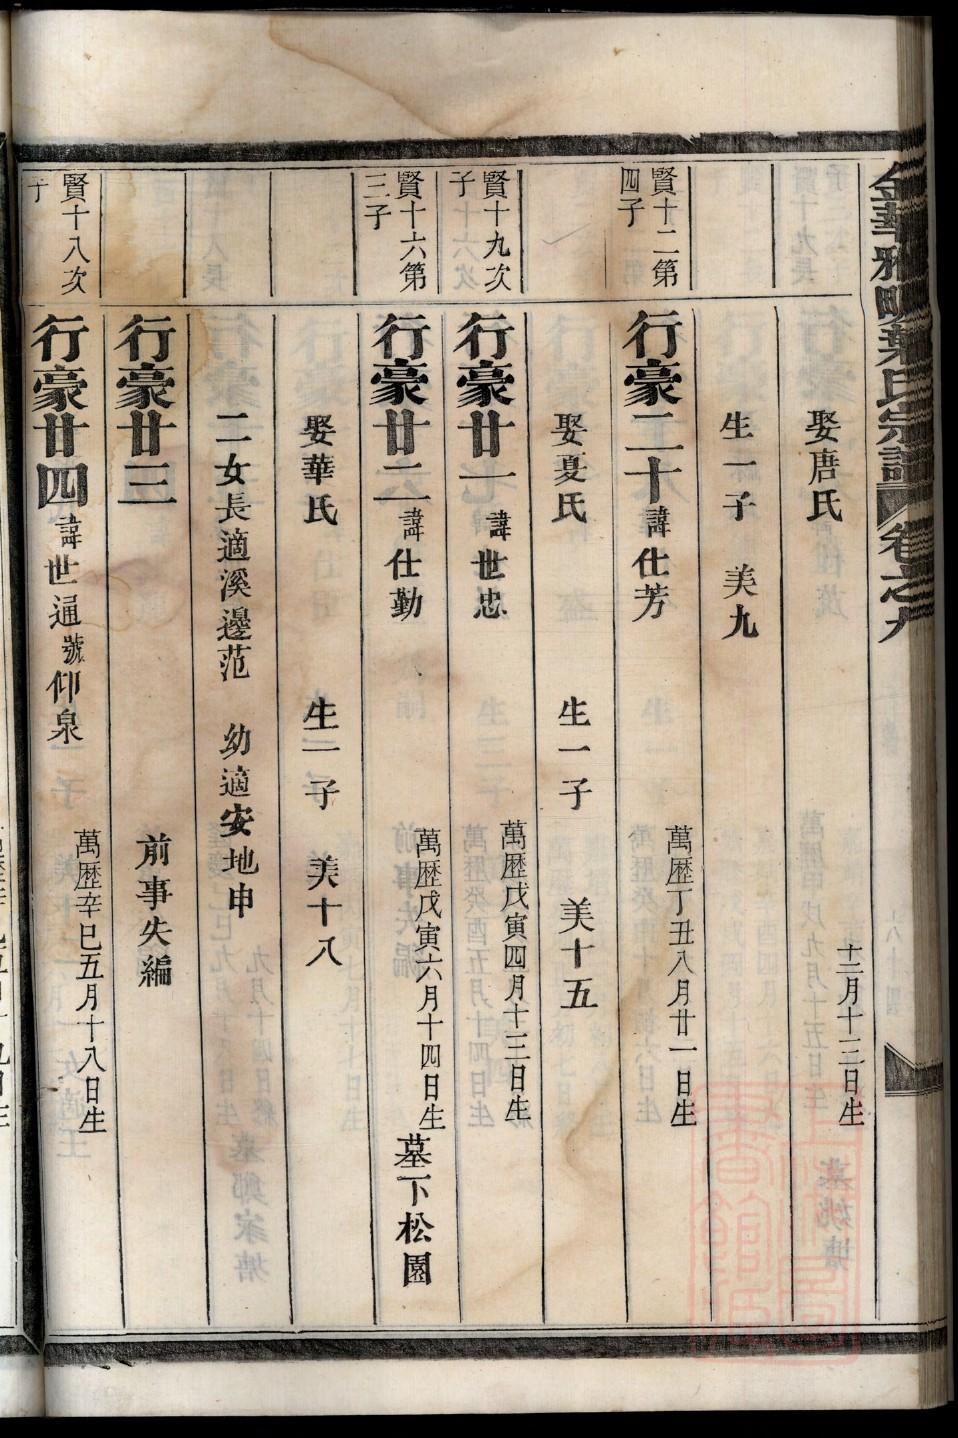 金華雅畈葉氏宗譜 卷之九
娶唐氏
十二月十二日生
生一子 美九
賢十二第
四子
行豪二十
諱仕芳
萬歷丁丑八月廿一日生
娶夏氏 生一子 美十五
賢十九次
子
行豪廿一
諱世忠
萬歷戊寅四月十三日生
賢十六第
三子
行豪廿二
諱仕勤
萬歷戊寅六月十四日生
墓下松園
娶華氏 生一子 美十八
二女長適溪邊范 幼適安地申
行豪廿三
前事失編
賢十八次
子
行豪廿四
諱世通號仰泉
萬歷辛巳五月十八日生